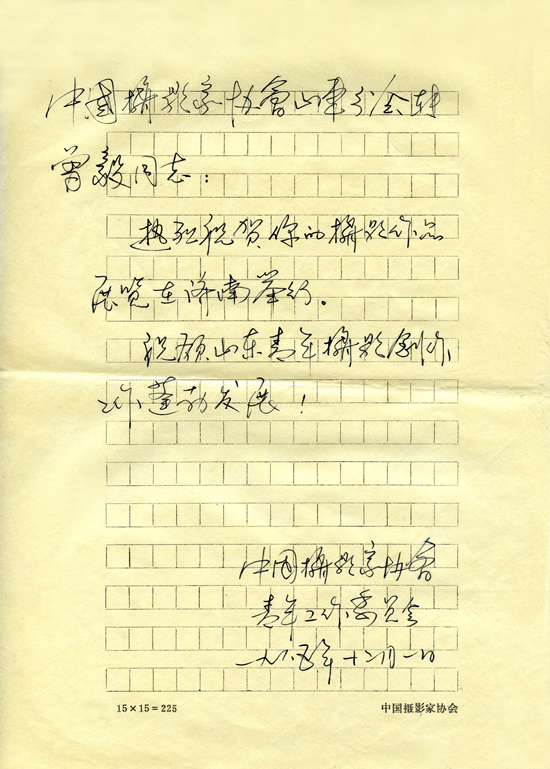 中国摄影家协會山東分会转
曾毅同志：
热烈祝贺你的摄影作品
展览在济南举行。
祝願山东青年摄影創作
工作蓬勃发展！
中国摄影家协會
青年工作委员会
一九八五年十二月一日
15×15=225
中国摄影家协会